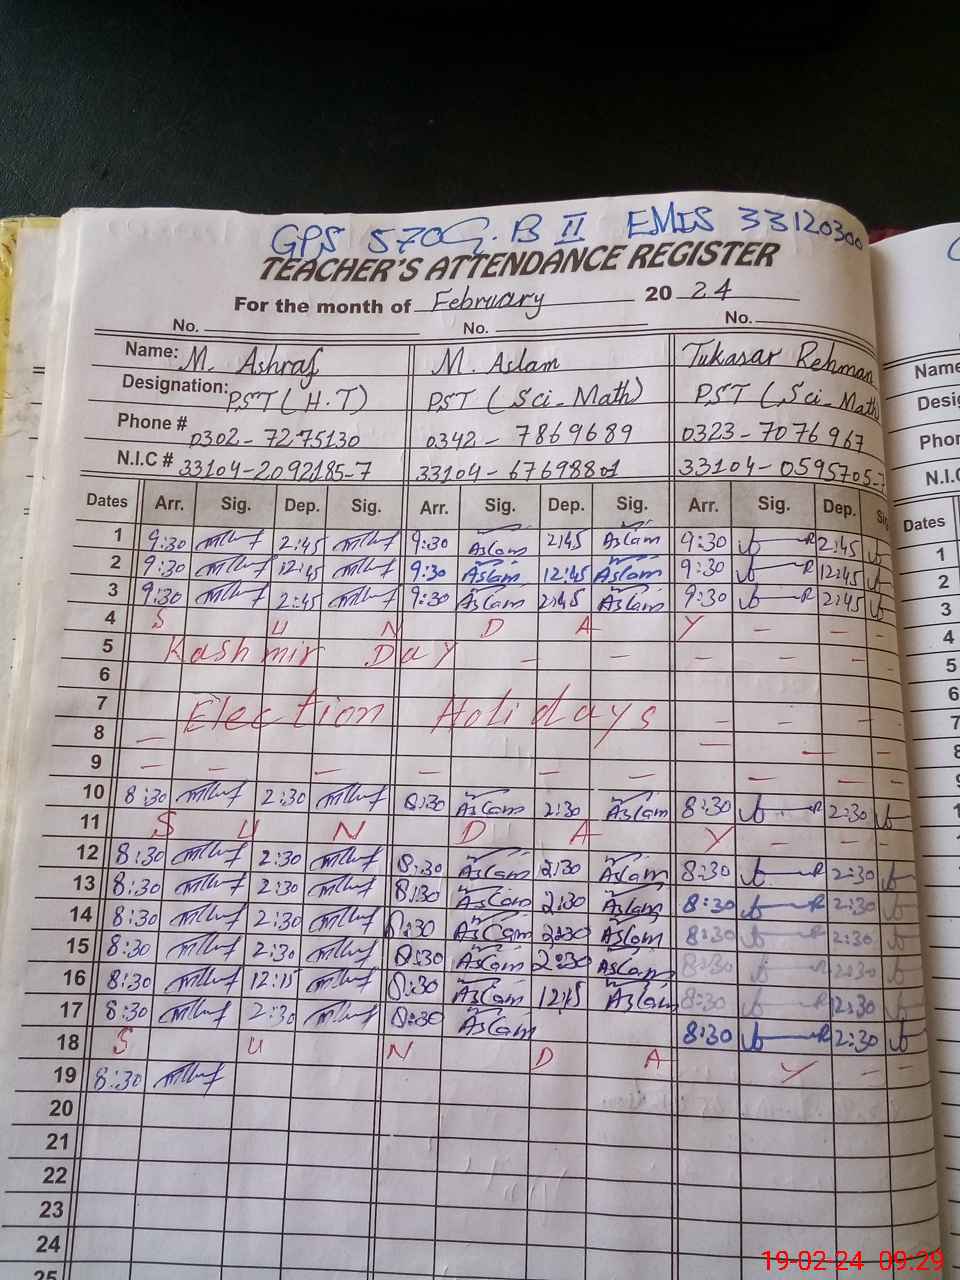 GPS 570 G.B II EMIS 33120300
TEACHER'S ATTENDANCE REGISTER
For the month of February 2024
No. No. No.
Name: M. Ashraf M. Aslam Tukasar Rehman
Designation: PST (H.T) PST (Sci-Math) PST (Sci-Math)
Phone # 0302-7275130 0342-7869689 0323-7076967
N.I.C # 33104-2092185-7 33104-67698801 33104-0595705-7
Dates Arr. Sig. Dep. Sig. Arr. Sig. Dep. Sig. Arr. Sig. Dep.
1 9:30 2:45 9:30 Aslam 2:45 Aslam 9:30 2:45
2 9:30 12:45 9:30 Aslam 12:45 Aslam 9:30 12:45
3 9:30 2:45 9:30 Aslam 2:45 Aslam 9:30 2:45
4 S U N D A Y - - -
5 Kashmir Day - - - - -
6
7 Election Holidays - - -
8 - - - -
9 - - - - - - - - -
10 8:30 2:30 8:30 Aslam 2:30 Aslam 8:30 2:30
11 S U N D A Y - - -
12 8:30 2:30 8:30 Aslam 2:30 Aslam 8:30 2:30
13 8:30 2:30 8:30 Aslam 2:30 Aslam 8:30 2:30
14 8:30 2:30 8:30 Aslam 2:30 Aslam 8:30 2:30
15 8:30 2:30 8:30 Aslam 2:30 Aslam 8:30 2:30
16 8:30 12:15 8:30 Aslam 12:15 Aslam 8:30 12:30
17 8:30 2:30 8:30 Aslam 8:30 2:30
18 S U N D A Y - -
19 8:30
20
21
22
23
24
25
Name
Desig
Phon
N.I.C
Dates
1
2
3
4
5
6
7
8
9
19-02-24 09:29